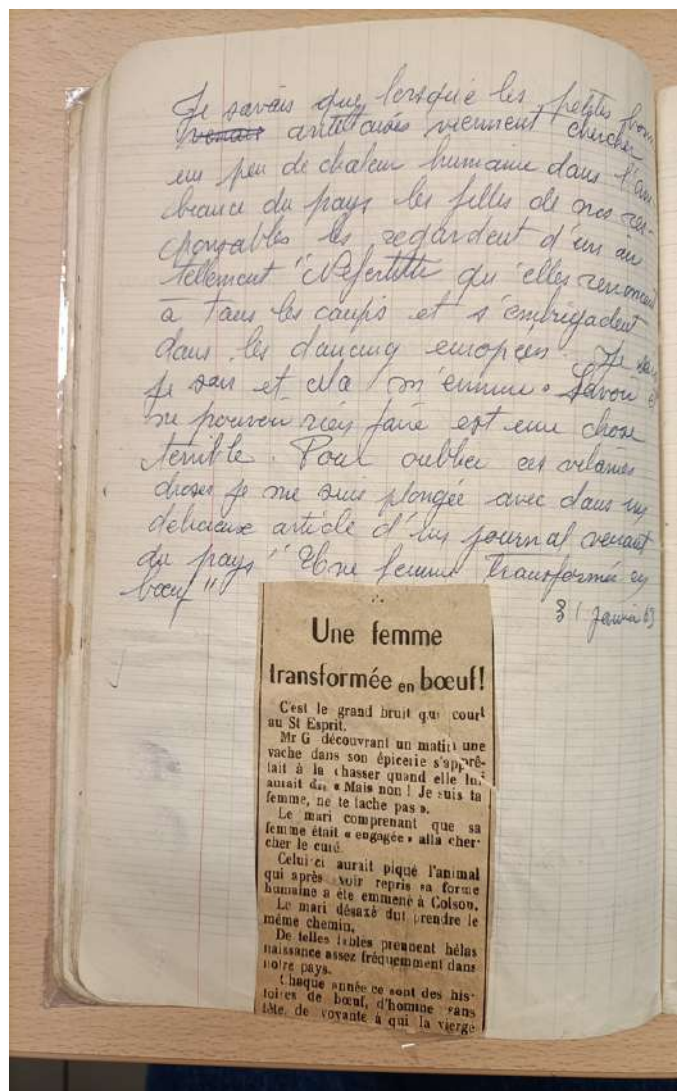 Je savais que lorsque les petites bonn
antillaises viennent chercher
un peu de chaleur humaine dans l'am
biance du pays les filles de nos res-
ponsables les regardent d'un air
tellement "Nefertiti qu'elles renoncent
à tous les coups et s'embrigadent
dans les dancing européen. Je sais
je sais et cela m'ennuie. Savoir et
ne pouvoir rien faire est une chose
terrible. Pour oublier ces vilaines
choses je me suis plongée avec dans un
délicieux article d'un journal venant
du pays "Une femme transformée en
bœuf"
31 Janvier 63
Une femme
transformée en bœuf!
C'est le grand bruit qui court
au St Esprit.
Mr G découvrant un matin une
vache dans son épicerie s'apprê-
tait à la chasser quand elle lui
aurait dit « Mais non ! Je suis ta
femme, ne te fache pas ».
Le mari comprenant que sa
femme était « engagée » alla cher-
cher le curé.
Celui-ci aurait piqué l'animal
qui après avoir repris sa forme
humaine a été emmené à Colson.
Le mari désaxé dut prendre le
même chemin.
De telles fables prennent hélas
naissance assez fréquemment dans
notre pays.
Chaque année ce sont des his-
toires de bœuf, d'homme sans
tête, de voyante à qui la vierge